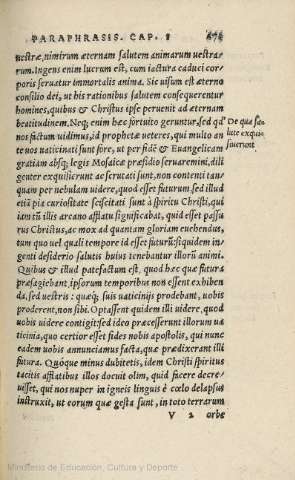 PARAPHRASIS. CAP. I
uestræ, nimirum æternam salutem animarum uestra-
rum. Ingens enim lucrum est, cum iactura caduci cor-
poris seruatur immortalis anima. Sic uisum est æterno
consilio dei, ut his rationibus salutem consequerentur
homines, quibus & Christus ipse peruenit ad æternam
beatitudinem. Neq; enim hæc fortuito geruntur, sed qđ
nos fictum uidimus, id prophetæ ueteres, qui multo an
te nos uaticinati sunt fore, ut per fidē & Euangelicam
gratiam absq; legis Mosaicæ præsidio seruaremini, dili
genter exquisierunt ac scrutati sunt, non contenti tan-
quam per nebulam uidere, quod esset futurum, sed illud
etiā pia curiositate sciscitati sunt à spiritu Christi, qui
iam tū illis arcano afflatu significabat, quid esset passu
rus Christus, ac mox ad quantam gloriam euehendus,
tum quo uel quali tempore id esset futurū: siquidem in
genti desiderio salutis huius tenebantur illorū animi.
Quibus & illud patefactum est, quod hæc quæ futura
præsagiebant, ipsorum temporibus non essent exhiben
da, sed uestris: quæq; suis uaticinijs prodebant, uobis
proderent, non sibi. Optassent quidem illi uidere, quod
uobis uidere contigit: sed idea præcesserunt illorum ua
ticinia, quo certior esset fides nobis apostolis, qui nunc
eadem uobis annunciamus facta, quæ prædixerant illi
futura. Quoque minus dubitetis, idem Christi spiritus
tacitis afflatibus illos docuit olim, quid facere decre-
uisset, qui nos nuper in igneis linguis è cœlo delapsus
instruxit, ut eorum quæ gesta sunt, in toto terrarum
V 2 orbe
De qua sa-
lute exquis
sierunt
Ministerio de Educación, Cultura y Deporte